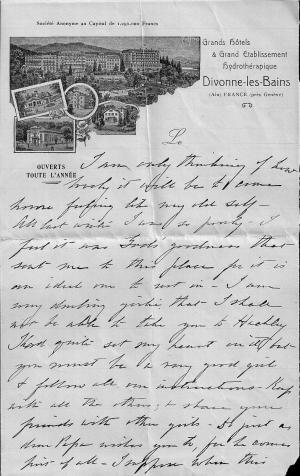 Société Anonyme au Capital de 1.250.000 Francs
Grands Hôtels
& Grand Etablissement
Hydrothérapique
Divonne-les-Bains
(Ain) FRANCE (près Genève)
OUVERTS
TOUTE L'ANNÉE
Le
I am only thinking of how
lovely it will be to come
home feeling like my old self -
All last week I am so
feel it was God's goodness that
sent me to this place for it is
an ideal one to rest in - I am
very darling girlie that I shall
not be able to take you to
I had quite set my heart on it but
you must be a very good girl
& follow all our instructions - Keep
with all the others, & share your
with other girls - Do just as
dear Papa wishes you to, for he comes
first of all - I suppose when this